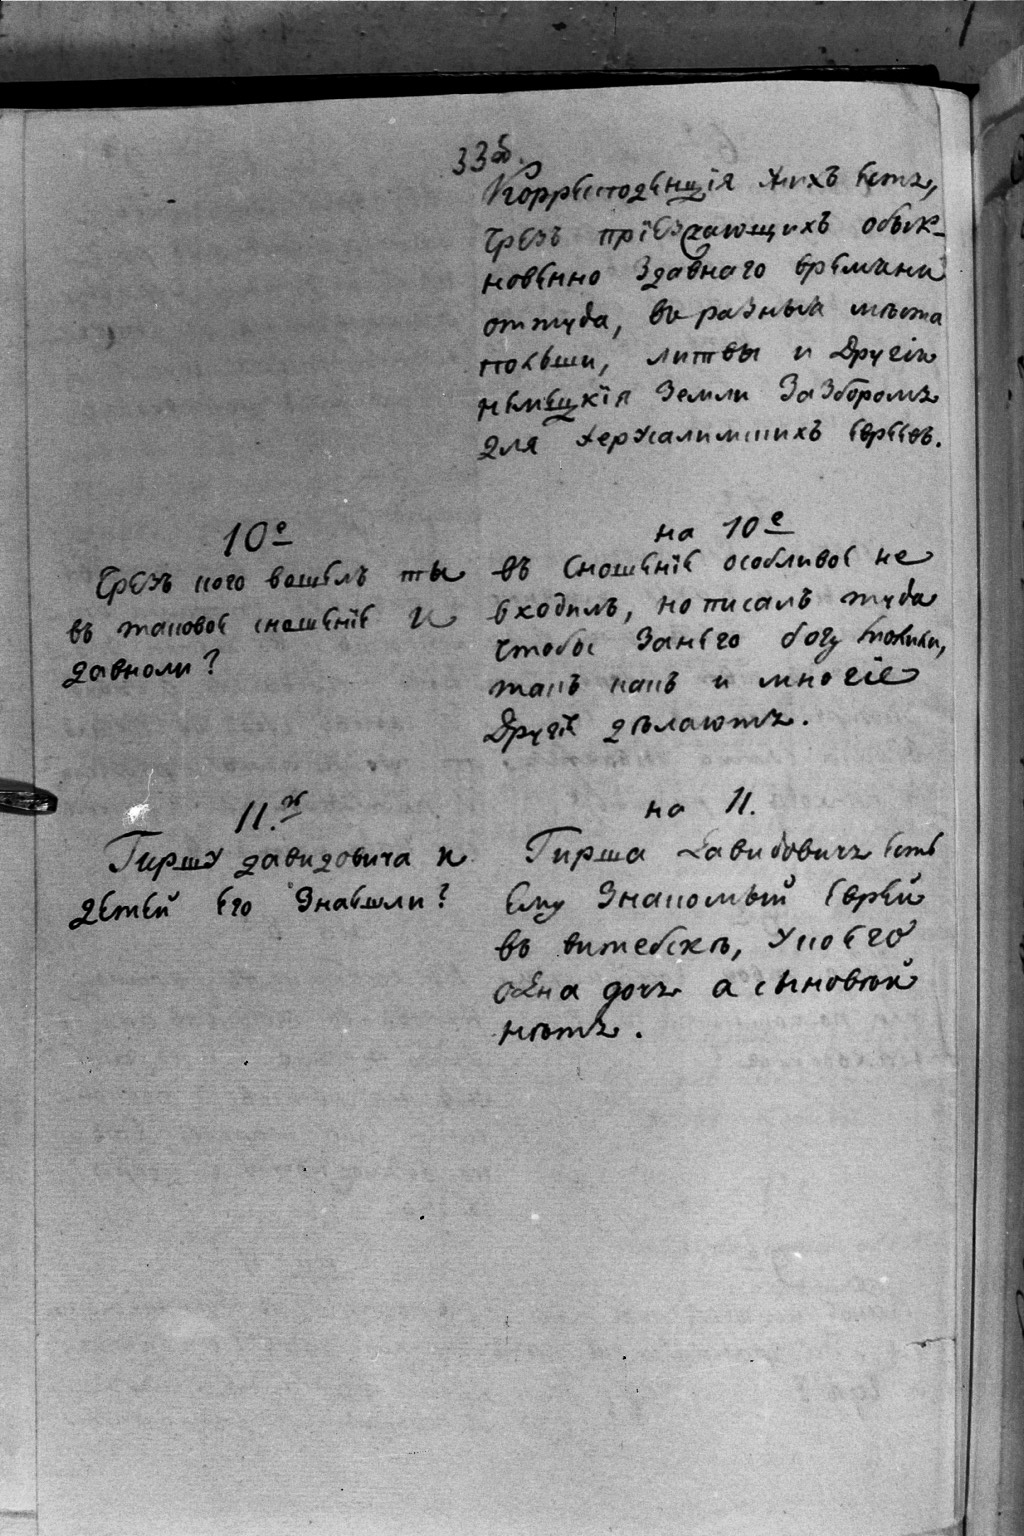 33об.
Корресподенція ихъ естъ,
чрезъ пріезжающихъ обык-
новенно здавнаго времени
оттуда, въ разныя мѣста
польши, литвы и другія
немецкія земли за зборомъ
для иерусалимскихъ евреевъ.
10е
чрезъ кого вошелъ ты
въ таковое сношеніе и
давноли?
на 10е
въ сношеніе особливое не
входилъ, но писалъ туда
чтобы занего богу молили,
такъ какъ и многіе
другіе дѣлаютъ.
11.
Гиршу давидовича и
детей его знаешли?
на 11.
Гирша давидовичъ есть
ему знакомый еврей
въ витебскѣ, у коего
одна дочь а сыновей
нѣтъ.